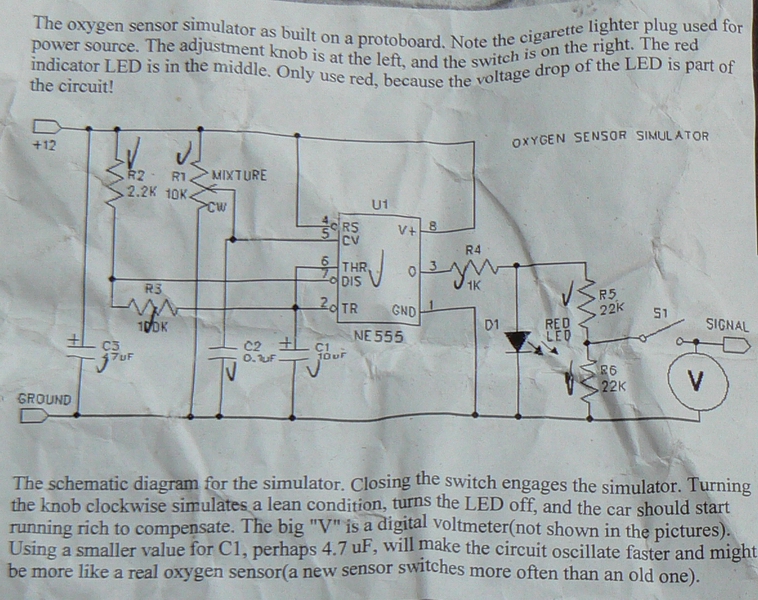 The oxygen sensor simulator as built on a protoboard. Note the cigarette lighter plug used for
power source. The adjustment knob is at the left, and the switch is on the right. The red
indicator LED is in the middle. Only use red, because the voltage drop of the LED is part of
the circuit!
OXYGEN SENSOR SIMULATOR
+12
R2
2.2K
R1
10K
MIXTURE
CW
U1
4
RS
5
CV
V+
8
6
THR
7
DIS
O
3
2
TR
GND
1
NE555
R3
100K
R4
1K
R5
22K
S1
SIGNAL
D1
RED
LED
R6
22K
V
C3
47uF
C2
0.1uF
C1
10uF
GROUND
The schematic diagram for the simulator. Closing the switch engages the simulator. Turning
the knob clockwise simulates a lean condition, turns the LED off, and the car should start
running rich to compensate. The big "V" is a digital voltmeter(not shown in the pictures).
Using a smaller value for C1, perhaps 4.7 uF, will make the circuit oscillate faster and might
be more like a real oxygen sensor(a new sensor switches more often than an old one).